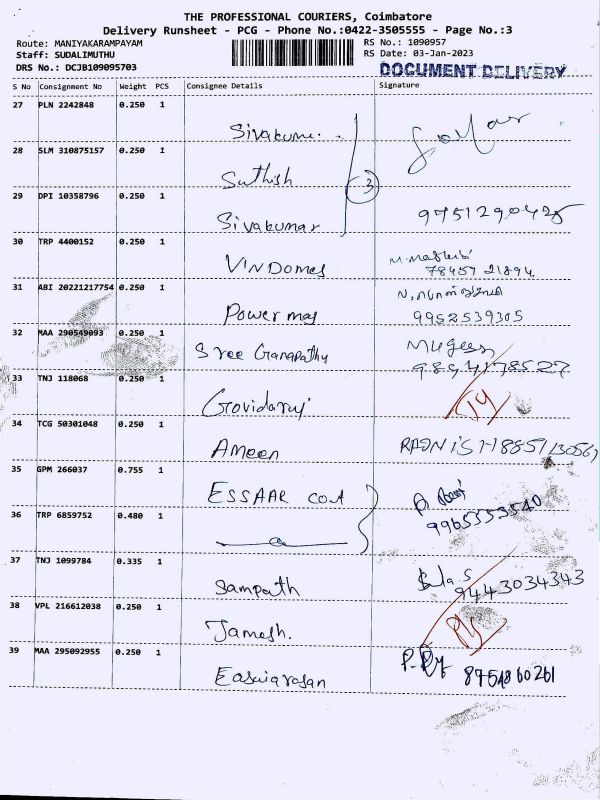 THE PROFESSIONAL COURIERS, Coimbatore
Delivery Runsheet - PCG - Phone No.:0422-3505555 - Page No.:3
Route: MANIYAKARAMPAYAM
RS No.: 1090957
Staff: SUDALIMUTHU
RS Date: 03-Jan-2023
DRS No.: DCJB109095703
DOCUMENT DELIVERY
S No Consignment No Weight PCS Consignee Details Signature
27 PLN 2242848 0.250 1
Sivakume.
28 SLM 310875157 0.250 1
Suthish
3
29 DPI 10358796 0.250 1
Sivakumar 9751290425
30 TRP 4400152 0.250 1
VINDomes
78457 21894
31 ABI 20221217754 0.250 1
Power mag 9952539305
32 MAA 290549093 0.250 1
Sree Ganapathy
9894178527
33 TNJ 118068 0.250 1
Govidaraj
34 TCG 50301048 0.250 1
Ameen
35 GPM 266037 0.755 1
ESSAAR coat
36 TRP 6859752 0.480 1
9965553540
37 TNJ 1099784 0.335 1
Sampath 9443034343
38 VPL 216612038 0.250 1
Jamesh.
39 MAA 295092955 0.250 1
Easwiarasan 8754860261